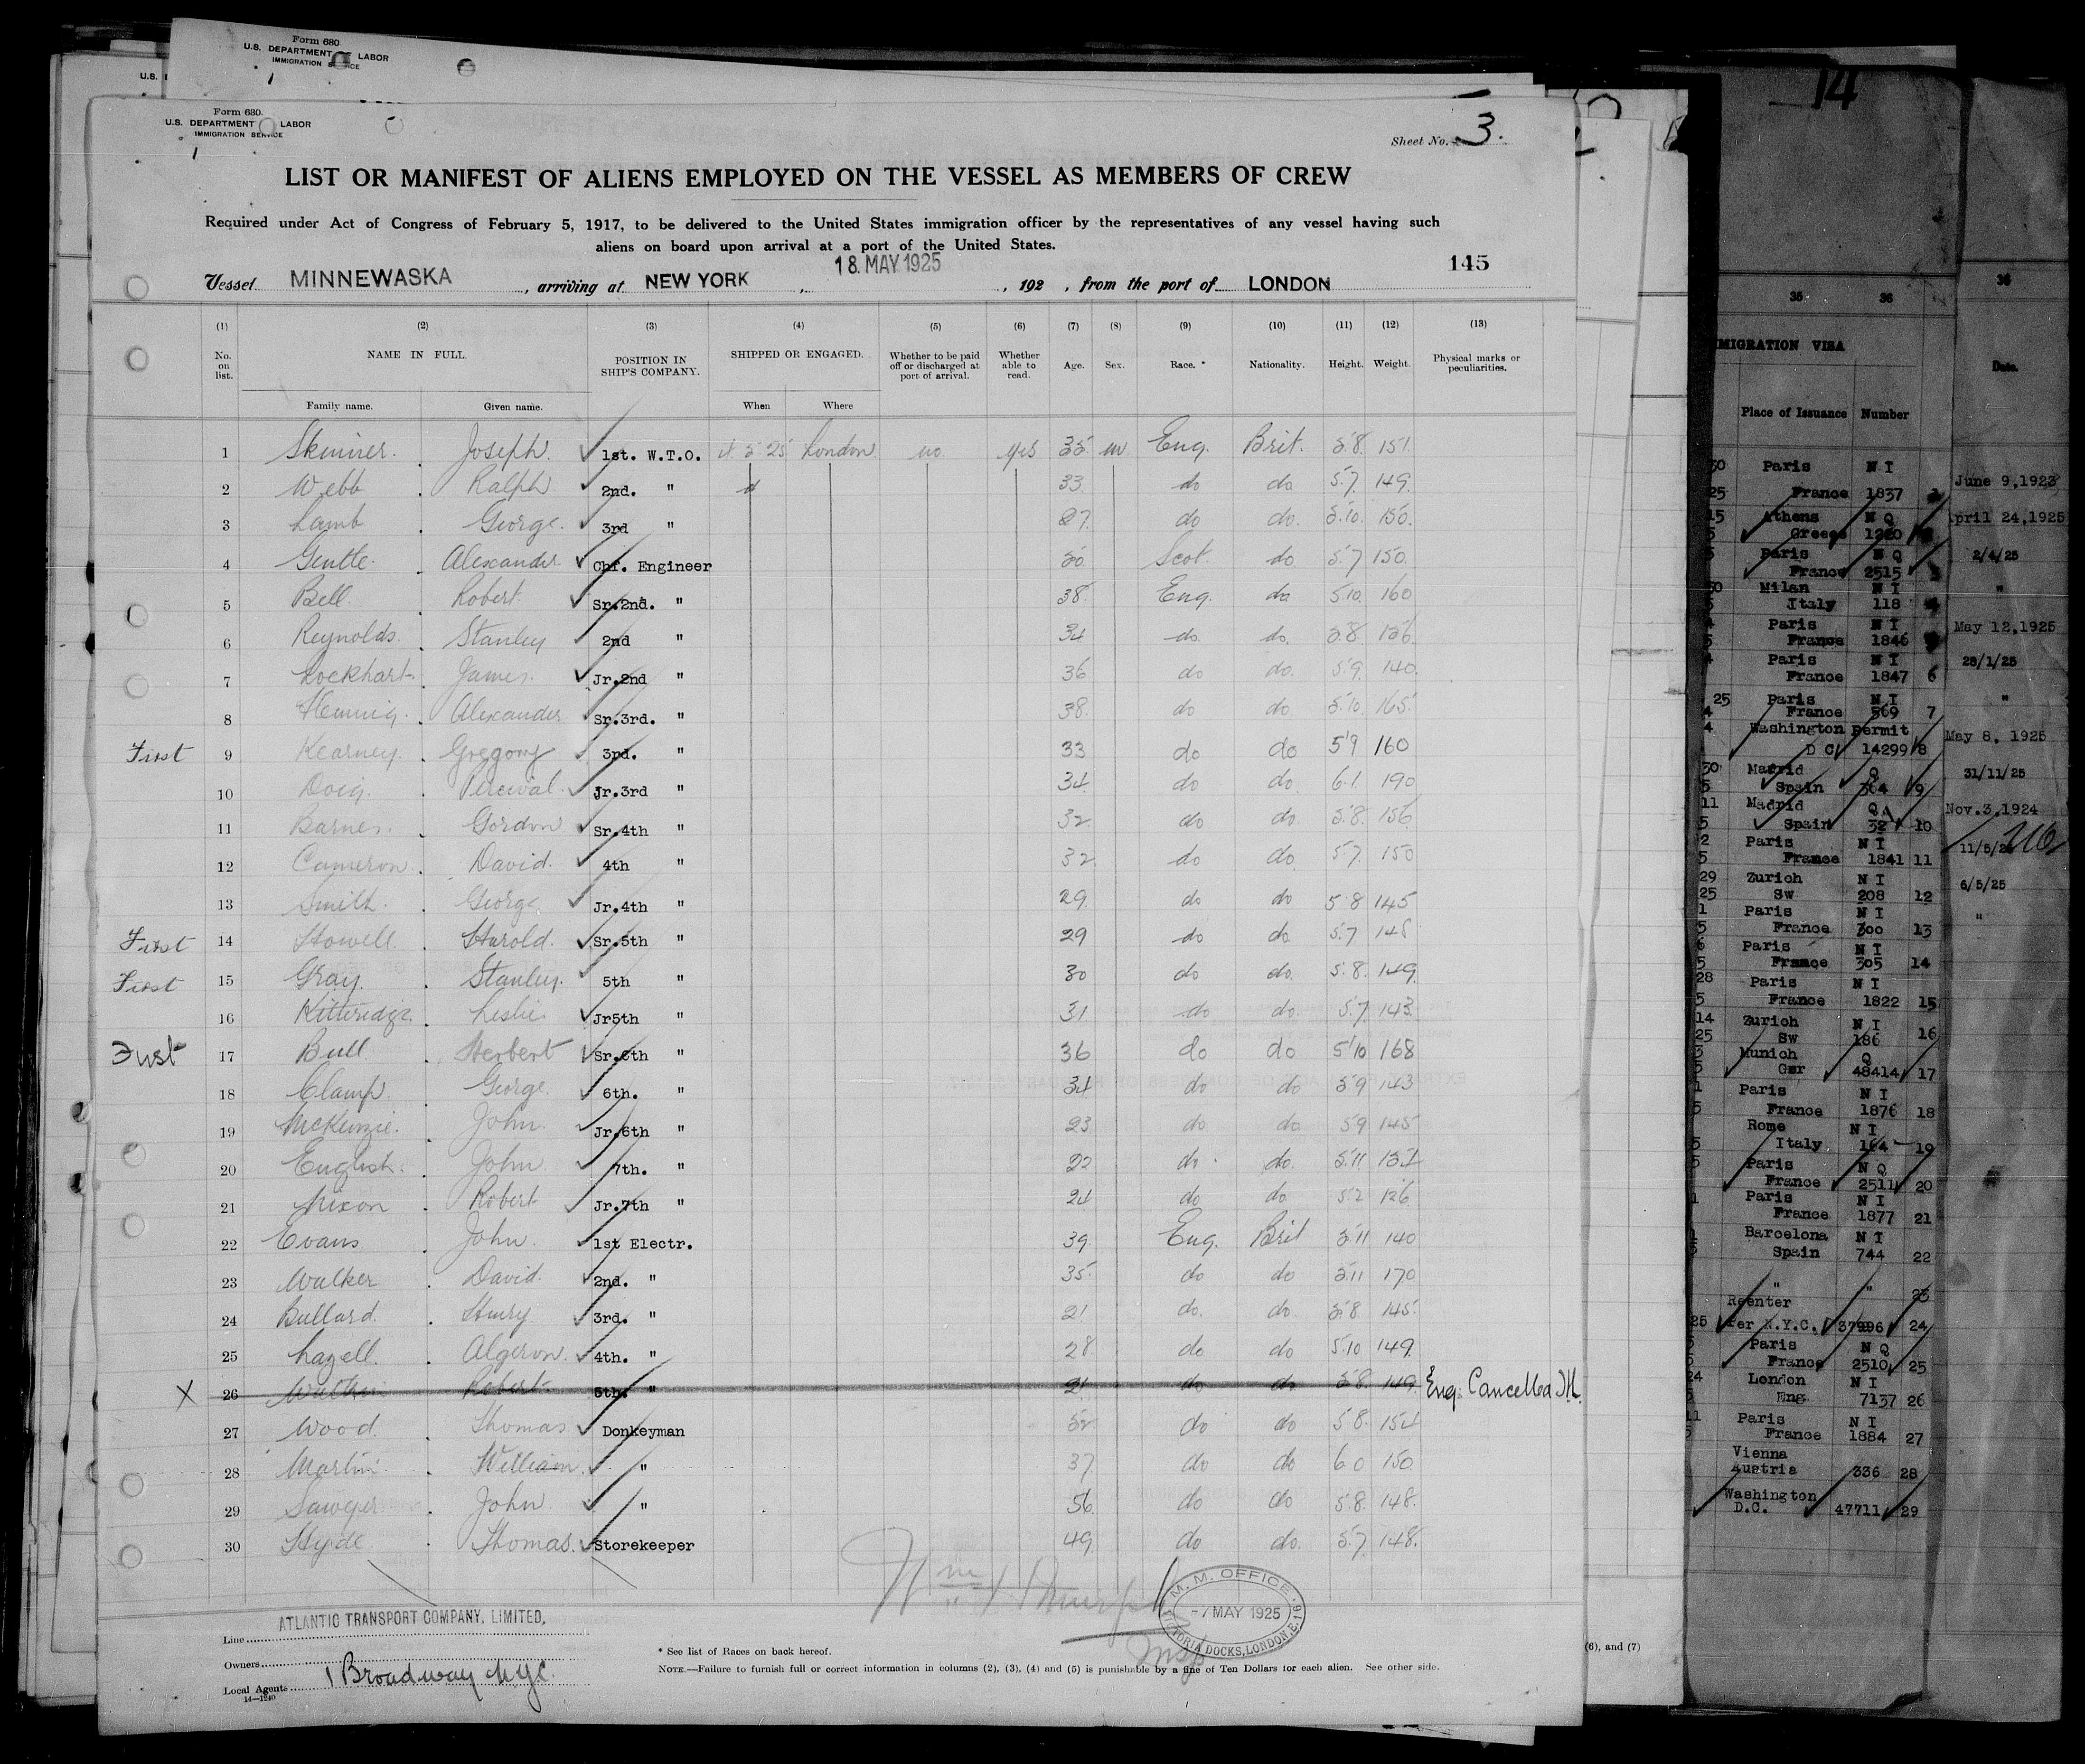 Form 680
U.S. DEPARTMENT OF LABOR
IMMIGRATION SERVICE
Form 680
U.S. DEPARTMENT LABOR
IMMIGRATION SERVICE
Sheet No. 3.
LIST OR MANIFEST OF ALIENS EMPLOYED ON THE VESSEL AS MEMBERS OF CREW
Required under Act of Congress of February 5, 1917, to be delivered to the United States immigration officer by the representatives of any vessel having such
aliens on board upon arrival at a port of the United States.
18 MAY 1925
145
Vessel MINNEWASKA, arriving at NEW YORK, , 192 , from the port of LONDON
(1) (2) (3) (4) (5) (6) (7) (8) (9) (10) (11) (12) (13)
No. on list. NAME IN FULL. POSITION IN SHIP'S COMPANY. SHIPPED OR ENGAGED. Whether to be paid off or discharged at port of arrival. Whether able to read. Age. Sex. Race. * Nationality. Height. Weight. Physical marks or peculiarities.
Family name. Given name. When Where
1 Skinner. Joseph. 1st. W.T.O. 4 5 25 London no yes 35 m Eng. Brit. 5.8 151
2 Webb Ralph 2nd. " 33 do do 5.7 149
3 Lamb George. 3rd " 27 do do. 5.10. 150.
4 Gentle Alexander Chf. Engineer 50 Scot do 5.7 150.
5 Bell Robert Sr.2nd. " 38 Eng. do 5.10 160
6 Reynolds. Stanley 2nd " 34 do do. 5.8 156
7 Lockhart James. Jr.2nd " 36 do do. 5.9 140
8 Alexander Sr.3rd. " 38 do do 5.10 165
First 9 Kearney. Gregory 3rd. " 33 do do 5'9 160
10 Doig. Percival. Jr.3rd " 34 do do. 6.1. 190
11 Barnes. Gordon Sr.4th " 32 do do 5.8. 156
12 Cameron David. 4th " 32 do do. 5.7. 150
13 Smith. George Jr.4th " 29 do do 5 8 145
First 14 Howell. Harold. Sr.5th " 29 do do 5.7 148
First 15 Gray. Stanley. 5th " 30 do do. 5.8. 149
16 Kitteridge Leslie Jr5th " 31 do do. 5.7. 143
First 17 Bull Herbert Sr.6th " 36 do do 5'10 168
18 Clamp. George. 6th. " 34 do do 5.9 143
19 McKenzie. John. Jr.6th " 23 do do 5.9 145
20 English. John 7th. " 22 do do. 5.11
21 Nixon Robert Jr.7th " 24 do do 5.2 126
22 Evans John. 1st Electr. 39. Eng. Brit 5.11 140
23 Walker David. 2nd. " 35 do do 5.11 170
24 Bullard. Henry 3rd. " 21 do. do. 5.8 145.
25 Lazell. Algeron. 4th. " 28 do do 5.10 149
X 26 Robert 5th. " 21 do do 5.8. 149 Eng. Cancelled
27 Wood. Thomas Donkeyman 52 do do 5.8. 154
28 Martin William. " 37 do do 6.0 150
29 Sawyer John. " 56 do do 5.8. 148.
30 Hyde Thomas. Storekeeper 49 do do. 5.7 148.
M. M. OFFICE
-7 MAY 1925
VICTORIA DOCKS, LONDON, E.16.
Insp
Line ATLANTIC TRANSPORT COMPANY, LIMITED,
Owners
Local Agents 1 Broadway N.Y.C.
14—1240
* See list of Races on back hereof.
NOTE.—Failure to furnish full or correct information in columns (2), (3), (4) and (5) is punishable by a fine of Ten Dollars for each alien. See other side.
(6), and (7)
14
35 36 36
MIGRATION VISA
Date.
Place of Issuance Number
Paris N I
France 1837 June 9,1923
Athens N Q April 24,1925
Greece
Paris N Q 2/4/25
France 2515
Milan N I "
Italy 118
Paris N I May 12,1925
France 1846
Paris N I
France 1847 6
Paris N I "
France 569 7
Washington Permit May 8, 1925
D C 14299 8
Madrid Q 31/11/25
Spain 364 9
Madrid Q Nov.3,1924
Spain 32 10
Paris N I
France 1841 11 216
Zurich N I 6/5/25
Sw 208 12
Paris N I "
France 300 13
Paris N I
France 305 14
Paris N I
France 1822 15
Zurich N I
Sw 186 16
Munich Q
Ger 48414 17
Paris N I
France 1876 18
Rome N I
Italy 164 19
Paris N Q
France 2511 20
Paris N I
France 1877 21
Barcelona N I
Spain 744 22
" " 23
Reenter
Per N.Y.C. 37996 24
Paris N Q
France 2510 25
London N I
Eng. 7137 26
Paris N I
France 1884 27
Vienna
Austria 336 28
Washington
D.C. 47711 29